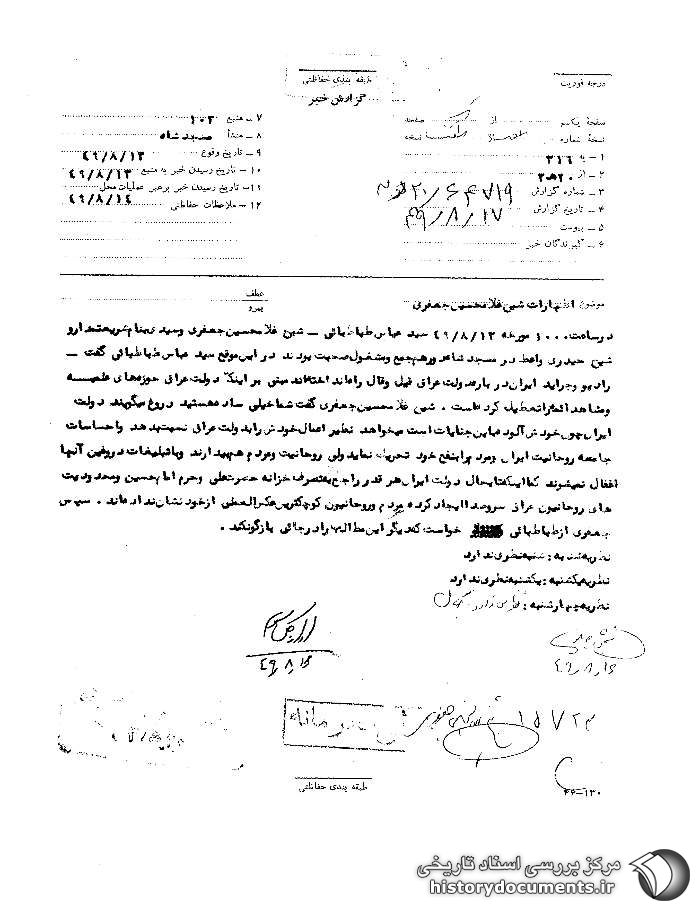 طبقه بندی حفاظتی
درجه فوریت
گزارش خبر
صفحه یکم از یک صفحه
نسخه شماره نسخه
۱ – به ۳۱۶
۲ – از ۲۰ ه ۲
۳ – شماره گزارش ۲۰/۶۴۷۱۹ ه ۲
۴ – تاریخ گزارش ۴۹/۸/۱۷
۵ – پیوست
۶ – گیرندگان خبر
۷ – منبع ۱۰۲
۸ – منشأ مسجد شاه
۹ – تاریخ وقوع ۴۹/۸/۱۳
۱۰ – تاریخ رسیدن خبر به منبع ۴۹/۸/۱۳
۱۱ – تاریخ رسیدن خبر برهبر عملیات محل ۴۹/۸/۱۴
۱۲ – ملاحظات حفاظتی
موضوع اظهارات شیخ غلامحسین جعفری
عطف
پیرو
در ساعت ۱۰۰۰ مورخه ۴۹/۸/۱۳ سید عباس طباطبائی – شیخ غلامحسین جعفری و سیدی بنام شریعتمدار و
شیخ حیدری واعظ در مسجد شاه دورهم جمع و مشغول صحبت بودند در این موقع سید عباس طباطبائی گفت –
رادیو و جراید ایران در باره دولت عراق قیل وقال راه انداخته‌اند مبنی بر اینکه دولت عراق حوزه‌های علمیه
ومشاهد ائمه را تعطیل کرده است . شیخ غلامحسین جعفری گفت شما خیلی ساده هستید دروغ میگویند دولت
ایران چون خودش آلوده باین جنایات است میخواهد نظیر اعمال خودش را بدولت عراق نسبت بدهد واحساسات
جامعه روحانیت ایران ومردم را بنفع خود تحریک نماید ولی روحانیت ومردم هم بیدارند وباتبلیغات دروغین آنها
اغفال نمیشوند کما اینکه تابحال دولت ایران هر قدر راجع بتصرف خزانه حضرت علی وحرم امام حسین ومحدودیت
های روحانیون عراق سروصدا ایجاد کرده مردم وروحانیون کوچکترین عکس العملی از خود نشان نداده‌اند . سپس
جعفری از طباطبائی خواست که دیگر این مطالب را در جائی بازگو نکند .
نظریه شنبه : شنبه نظری ندارد
نظریه یکشنبه : یکشنبه نظری ندارد
نظریه چهارشنبه :
۴۹/۸/۱۶
۴۹/۸/۱۶
محرمانه
۱۵۷۲۳
طبقه بندی حفاظتی
۴۴–۱۳۰
مرکز بررسی اسناد تاریخی
historydocuments.ir